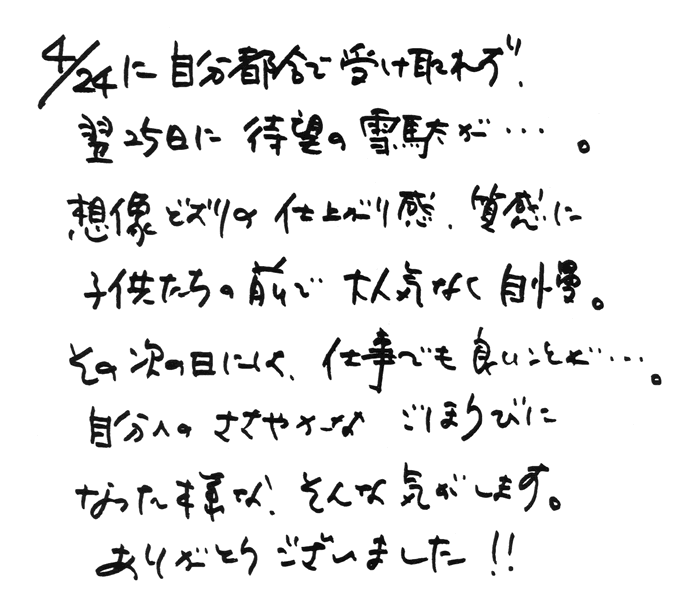 4/24に自分都合で受け取れず、
翌25日に待望の雪駄が…。
想像どおりの仕上がり感、質感に
子供たちの前で大人気なく自慢。
その次の日には、仕事でも良いことが…。
自分へのささやかなごほうびに
なった様な、そんな気がします。
ありがとうございました!!